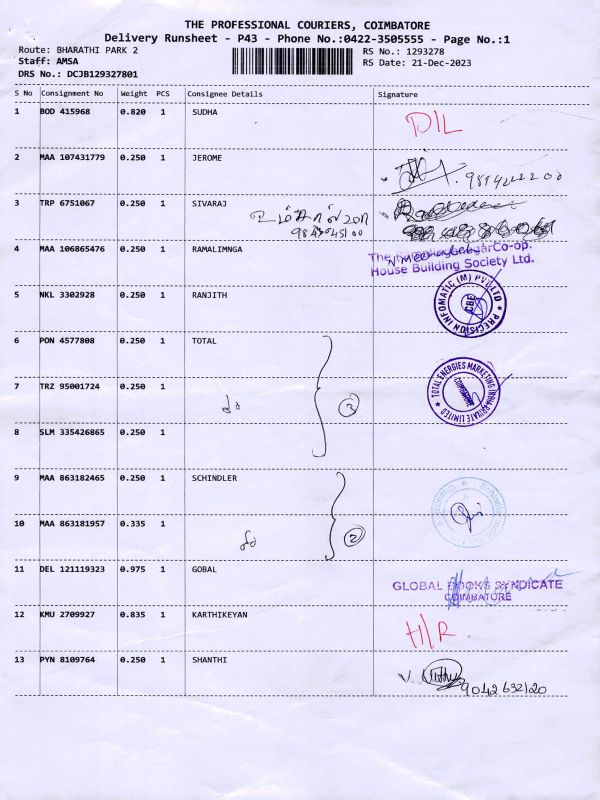 THE PROFESSIONAL COURIERS, COIMBATORE
Delivery Runsheet - P43 - Phone No.:0422-3505555 - Page No.:1
Route: BHARATHI PARK 2
RS No.: 1293278
Staff: AMSA
RS Date: 21-Dec-2023
DRS No.: DCJB129327801
S No Consignment No Weight PCS Consignee Details Signature
1 BOD 415968 0.820 1 SUDHA D/L
2 MAA 107431779 0.250 1 JEROME
3 TRP 6751067 0.250 1 SIVARAJ
4 MAA 106865476 0.250 1 RAMALIMNGA
Co-op.
House Building Society Ltd.
5 NKL 3302928 0.250 1 RANJITH
PRECISION INFOMATIC (M) PVT LTD
CBE
6 PON 4577808 0.250 1 TOTAL
TOTAL ENERGIES MARKETING INDIA PRIVATE LIMITED
COIMBATORE
7 TRZ 95001724 0.250 1 do 3
8 SLM 335426865 0.250 1
9 MAA 863182465 0.250 1 SCHINDLER
10 MAA 863181957 0.335 1 do 2
11 DEL 121119323 0.975 1 GOBAL
GLOBAL BOOKS SYNDICATE
COIMBATORE
12 KMU 2709927 0.835 1 KARTHIKEYAN H/R.
13 PYN 8109764 0.250 1 SHANTHI
9042632120